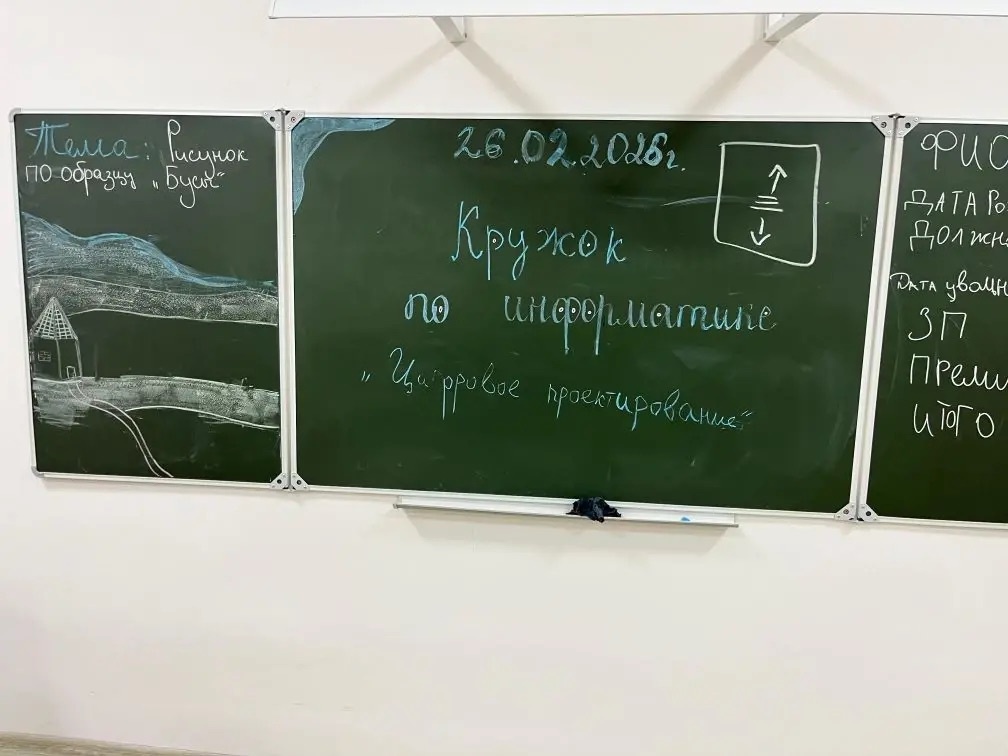 Тема: Рисунок
по образцу „Бусы“
26.02.2026г.
Кружок
по информатике
„Цифровое проектирование“
ФИО
ДАТА РО
ДОЛЖН
ДАТА увольн
ЗП
ПРЕМИ
ИТОГО